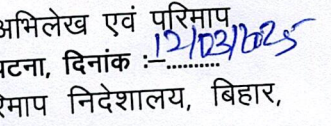 अभिलेख एवं परिमाप
पटना, दिनांक :–12/03/2025
रमाप निदेशालय, बिहार,